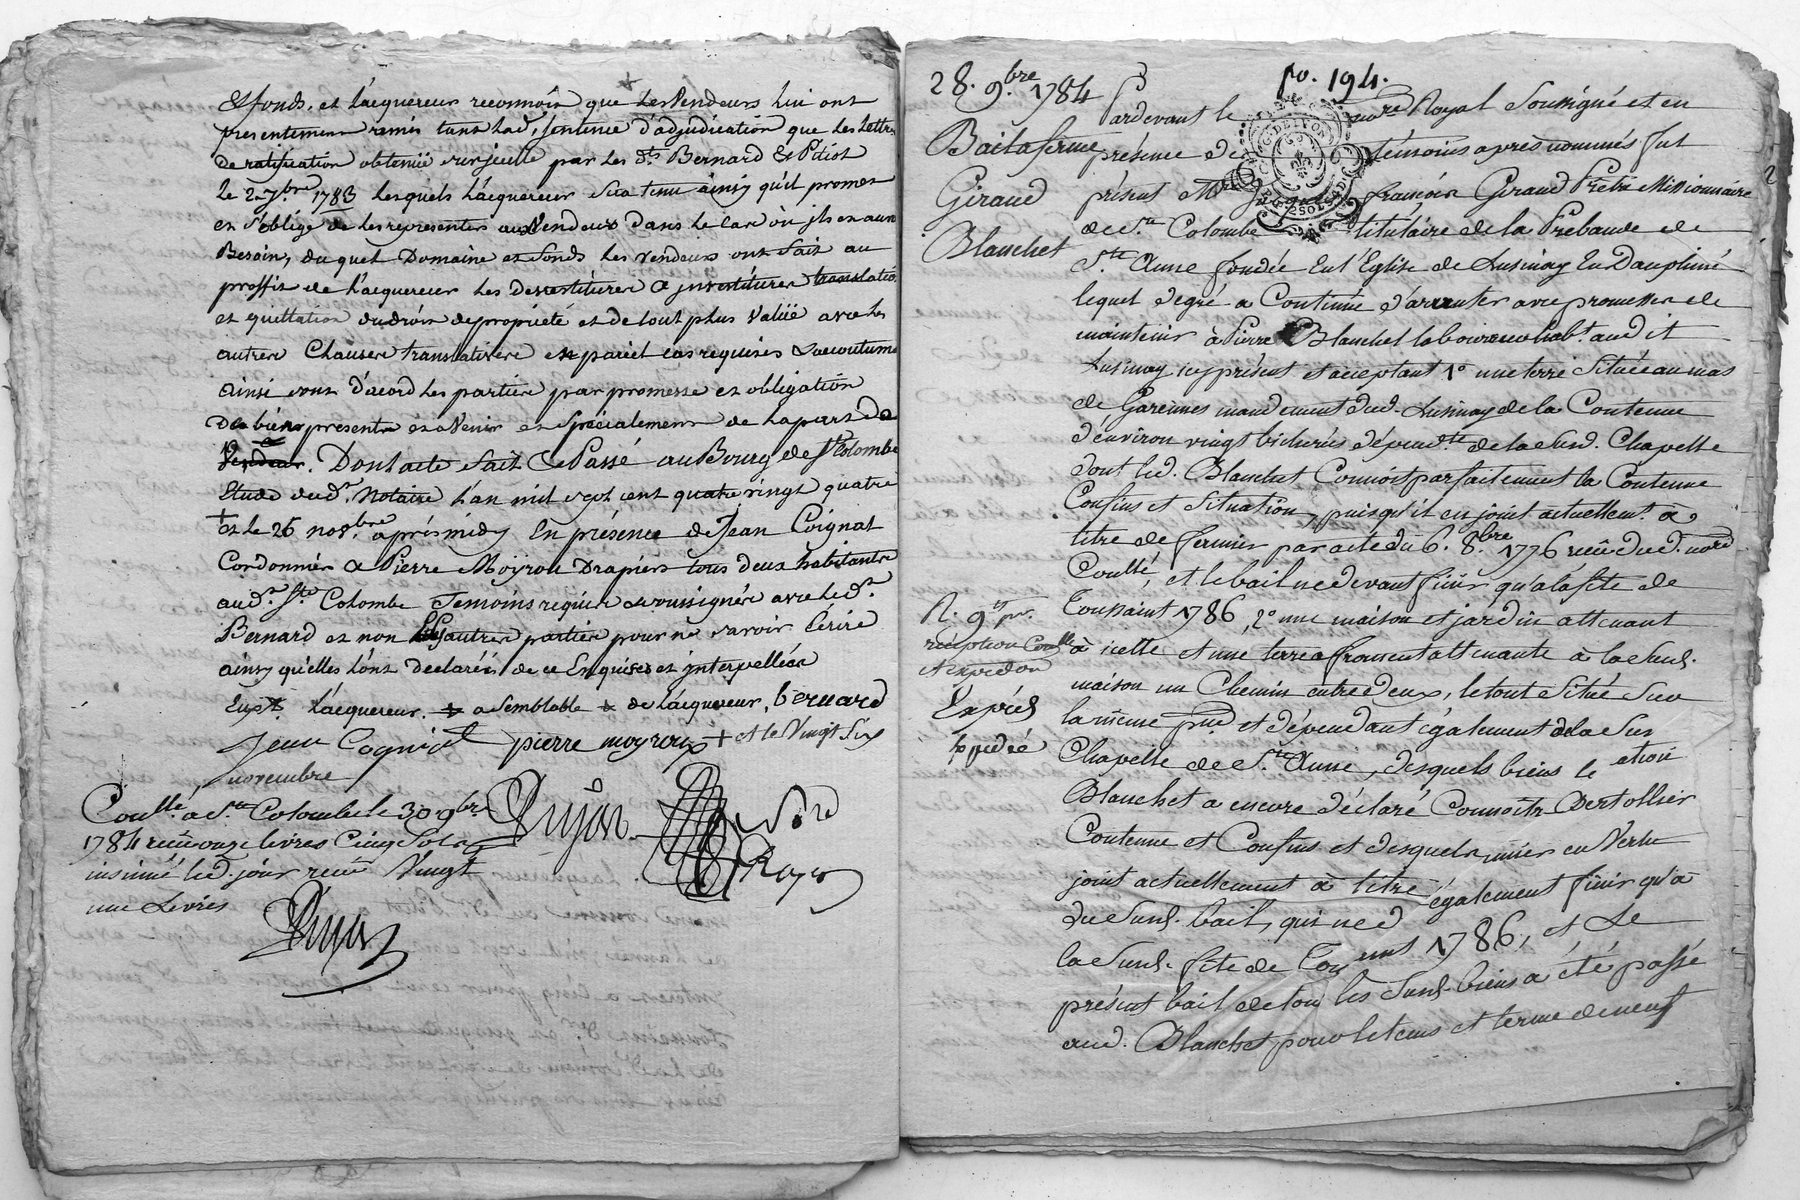 et fonds, et l'acquereur reconnoit que les Vendeurs lui ont
presentement remis tant lad. sentence d'adjudication que les Lettres
de ratification obtenuë sur jcelle par les srs. Bernard & Pitiot
le 2 7.bre 1783 lesquels l'acquereur sera tenu ainsy qu'il promet
et s'oblige de les representer aux Vendeurs dans le cas où jls en auront
Besoin, du quel Domaine et fonds les vendeurs ont fait au
proffit de l'acquereur les devestitures & jnvestitures translation
et quittation du droit de propriété et de tout plus Valüe avec les
autres Clauses translatives en pareil cas requises & accoutumé
ainsi sont d'acord les parties par promesse et obligation
De biens presents et a Venir et Spécialement de la part du
Vendeur. Dont acte fait & Passé au Bourg de Ste Colombe
Etude dud. Notaire l'an mil sept cent quatre vingt quatre
+ et le 26 nov.bre après midy En présence de Jean Coignat
Cordonnier & Pierre Moyrou Drapiers tous deux habitants
aud. Ste Colombe Temoins requis & soussignés avec led.
Bernard et non les autres parties pour ne savoir Ecrire
ainsy qu'elles l'ont declaréés de ce Enquises et jnterpellées
l'acquereur. a Semblable de l'acquereur, bernard
Jean Cognat pierre moyroux + et le Vingt Six
novembre
Coullé a Ste Colombe le 30 9bre
1784 reçu onze livres Cinq Sols
insinué led. jour reçu Vingt
une Livres
Dujar
28. 9.bre 1784
Bail a ferme
Giraud
Blanchet
fo. 194.
Pardevant le no.re Royal Soussigné et en
présence des témoins après nommés fut
présent M.re François Giraud Prêtre Missionnaire
de Ste Colombe titulaire de la Prébande de
Ste Anne fondée En l'Eglise de Luzinay En Dauphiné
lequel de gré a Continué d'arrenter avec promesse de
maintenir à Pierre Blanchet laboureur habt. aud it
Luzinay icy présent et acceptant 1° une terre Située au mas
de Garennes mandement dud. Luzinay de la Contenue
d'environ vingt bicherées dépend.te de la Susd. Chapelle
dont led. Blanchet Connoit parfaitement la Contenue
Confins et Situation, puisqu'il en joint actuellemt. à
titre de fermier par acte du 6. 8.bre 1776 reçu dud. no.re
Coullé, et le bail ne devant finir qu'à la fête de
Toussaint 1786, 2° une maison et jardin attenant
à icelle et une terre a froment attenante à la Susd.
maison un Chemin entre deux, le tout Situé Sur
la même et dépendant également de la Sus
Chapelle de Ste Anne, desquels biens le
Blanchet a encore déclaré Connoître
Contenue et Confins et desquels en Vertu
joint actuellement à titre
du Susd. bail, qui ne d également finir qu'à
la Susd. fête de Tous aint 1786, et Le
présent bail de tous les Susd. biens a été passé
aud. Blanchet, pour le tems et terme de neuf
Expédié